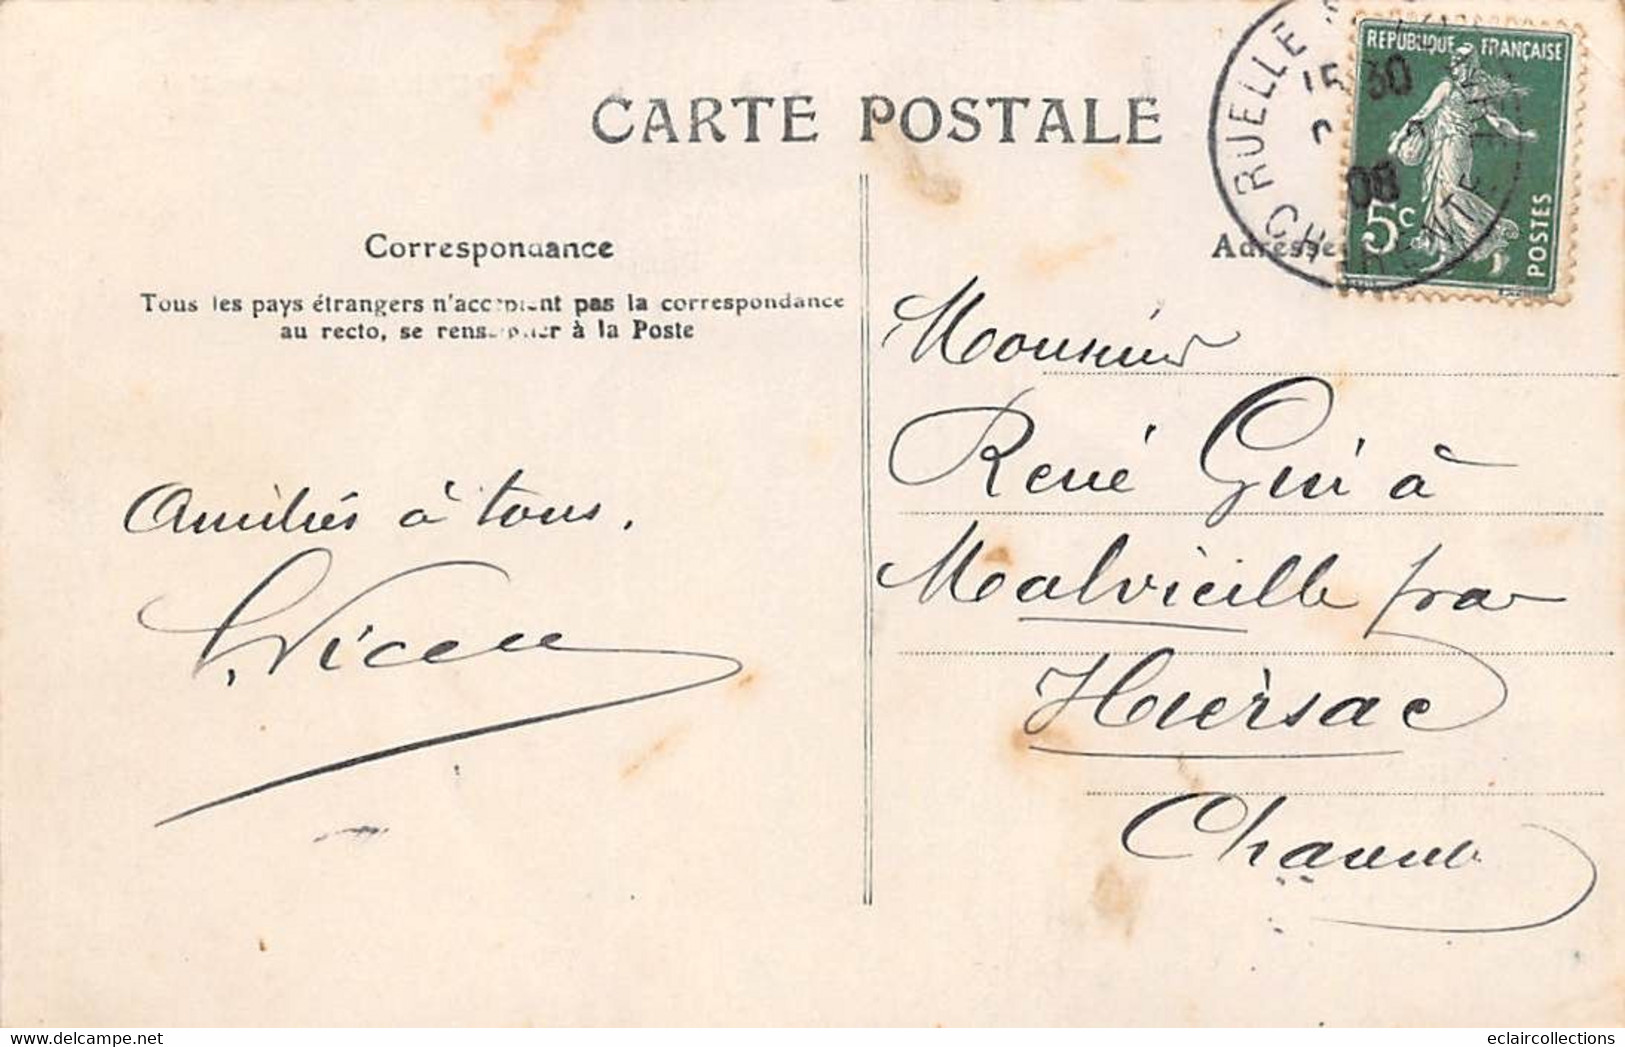 CARTE POSTALE
RUELLE
CHARENTE
15 30
08
REPUBLIQUE FRANÇAISE
5c
POSTES
Correspondance
Tous les pays étrangers n'acceptent pas la correspondance
au recto, se renseigner à la Poste
Amitiés à tous.
Adresse
Monsieur
René Gui à
Malvieille par
Hiersac
Charente
delcampe.net
eclaircollections